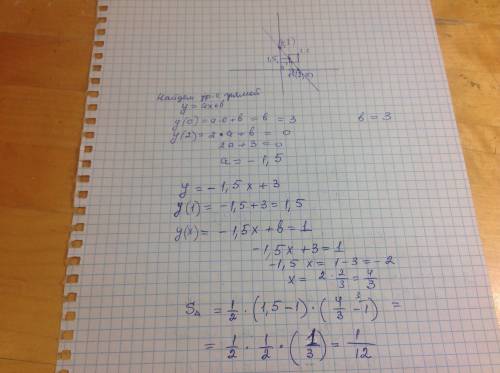 1,5
Найдем ур-е прямой
y = ax+b
y(0) = a·0+b = b = 3    b = 3
y(2) = 2·a+b = 0
2a+3=0
a = -1,5
y = -1,5x+3
y(1) = -1,5+3 = 1,5
y(x) = -1,5x+b = 1
-1,5x+3=1
-1,5x = 1-3 = -2
x = 2·2/3 = 4/3
S△ = 1/2 · (1,5-1) · (4/3 - 1) =
= 1/2 · 1/2 · (1/3) = 1/12